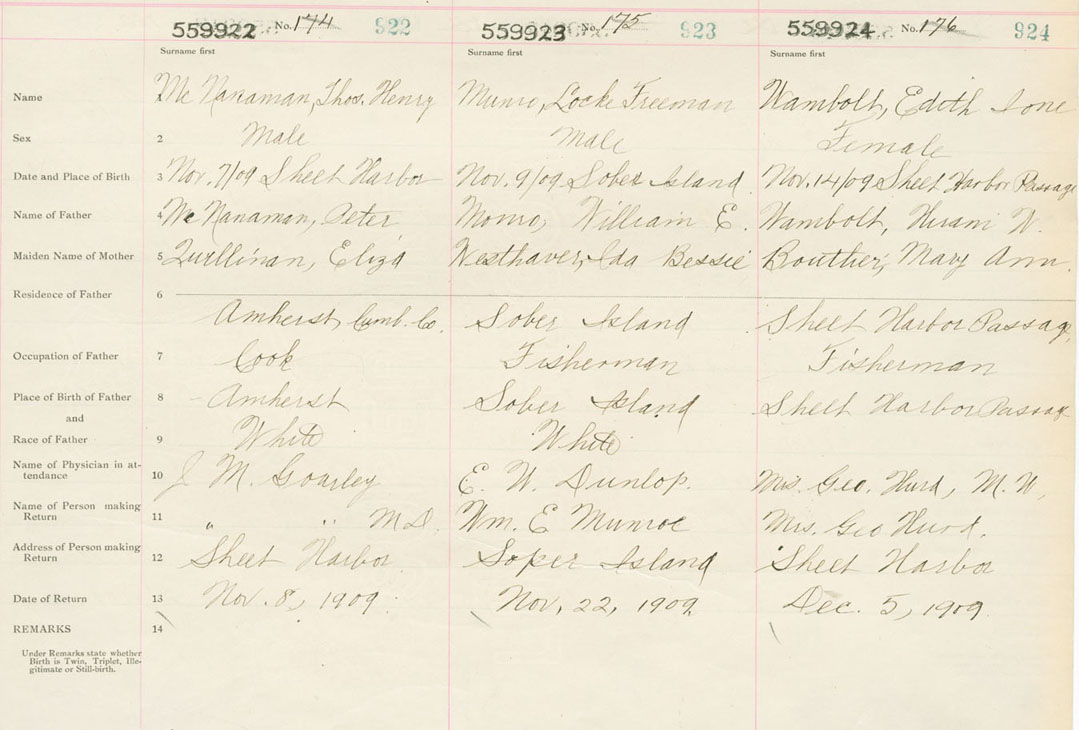 559922 No. 174 922 559923 No. 175 923 559924 No. 176 924
Surname first Surname first Surname first
Name Mc Nanaman, Thos. Henry Munro, Locke Freeman Wambolt, Edith Ione
Sex 2 Male Male Female
Date and Place of Birth 3 Nov. 7/09 Sheet Harbor Nov. 9/09 Sober Island Nov. 14/09 Sheet Harbor Passage
Name of Father 4 Mc Nanaman, Peter Monro, William E. Wambolt, Hiram W.
Maiden Name of Mother 5 Quillinan, Eliza Westhaver, Ida Bessie Bouttier, Mary Ann.
Residence of Father 6
Amherst Cumb. Co. Sober Island Sheet Harbor Passage
Occupation of Father 7 Cook Fisherman Fisherman
Place of Birth of Father 8 Amherst Sober Island Sheet Harbor Passage
and
Race of Father 9 White White
Name of Physician in at-
tendance 10 J M. Gourley E. W. Dunlop. Mrs. Geo. Hurd, M. W.
Name of Person making
Return 11 " " M D. Wm. E Munroe Mrs. Geo Hurd.
Address of Person making
Return 12 Sheet Harbor. Soper Island Sheet Harbor
Date of Return 13 Nov. 8, 1909. Nov, 22, 1909. Dec. 5, 1909
REMARKS 14
Under Remarks state whether
Birth is Twin, Triplet, Ille-
gitimate or Still-birth.